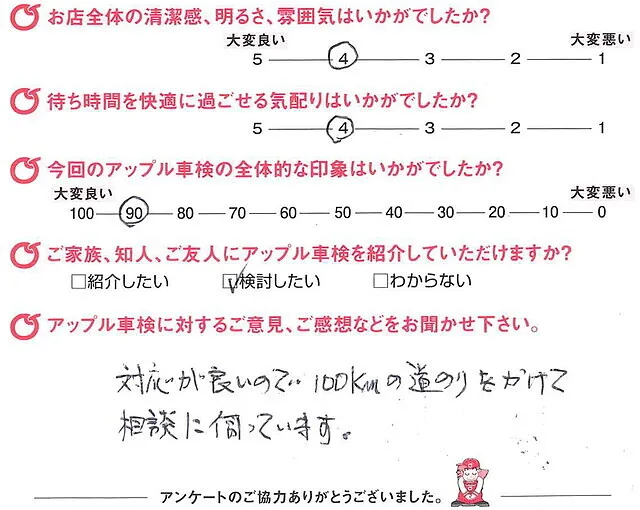 お店全体の清潔感、明るさ、雰囲気はいかがでしたか?
大変良い 大変悪い
5 4 3 2 1
待ち時間を快適に過ごせる気配りはいかがでしたか?
5 4 3 2 1
今回のアップル車検の全体的な印象はいかがでしたか?
大変良い 大変悪い
100 90 80 70 60 50 40 30 20 10 0
ご家族、知人、ご友人にアップル車検を紹介していただけますか?
□紹介したい □検討したい □わからない
アップル車検に対するご意見、ご感想などをお聞かせ下さい。
対応が良いので 100Kmの道のりをかけて
相談に伺っています。
アンケートのご協力ありがとうございました。